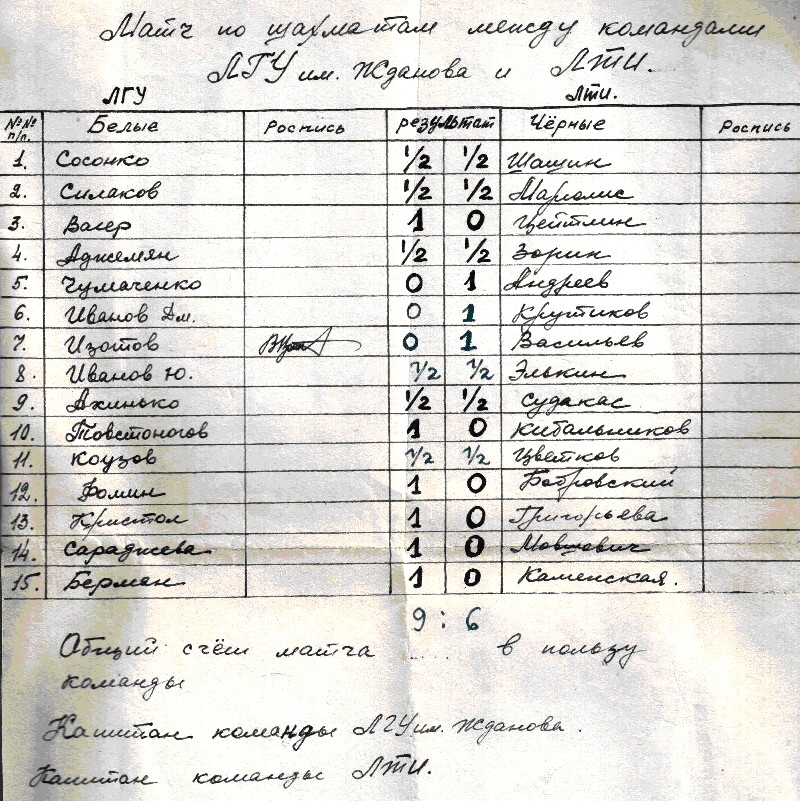 Матч по шахматам между командами
ЛГУ им. Жданова и ЛТИ.
ЛГУ ЛТИ.
№№ п/п. Белые Роспись результат Чёрные Роспись
1. Сосонко 1/2 1/2 Шашин
2. Силаков 1/2 1/2 Марголис
3. Вагер 1 0 Цейтлин
4. Аджемян 1/2 1/2 Зорин
5. Чумаченко 0 1 Андреев
6. Иванов Дм. 0 1 Крутиков
7. Изотов 0 1 Васильев
8. Иванов Ю. 1/2 1/2 Элькин
9. Ахинько 1/2 1/2 Судакас
10. Товстоногов 1 0 Кибальников
11. Коузов 1/2 1/2 Цветков
12. Фомин 1 0 Бобровский
13. Кристол 1 0 Григорьева
14. Сараджева 1 0 Мовшевич
15. Берман 1 0 Каменская.
9 : 6
Общий счёт матча .... в пользу
команды
Капитан команды ЛГУ им. Жданова.
Капитан команды ЛТИ.